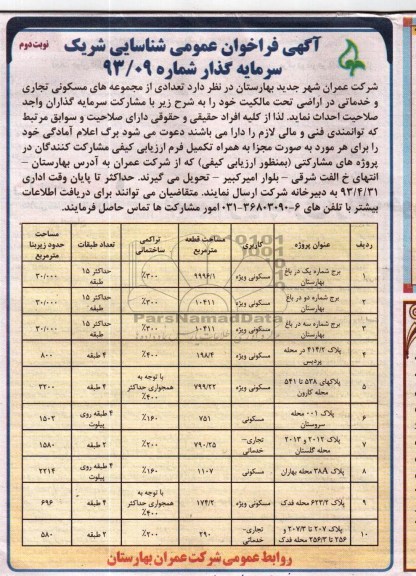 آگهی فراخوان عمومی شناسایی شریک
نوبت دوم
سرمایه گذار شماره ۹۳/۰۹
شرکت عمران شهر جدید بهارستان در نظر دارد تعدادی از مجموعه های مسکونی تجاری
و خدماتی در اراضی تحت مالکیت خود را به شرح زیر با مشارکت سرمایه گذاران واجد
صلاحیت احداث نماید. لذا از کلیه افراد حقیقی و حقوقی دارای صلاحیت و سوابق مرتبط
که توانمندی فنی و مالی لازم را دارا می باشند دعوت می شود برگ اعلام آمادگی خود
را برای هر مورد به صورت مجزا به همراه تکمیل فرم ارزیابی کیفی مشارکت کنندگان در
پروژه های مشارکتی (بمنظور ارزیابی کیفی) که از شرکت عمران به آدرس بهارستان -
انتهای خ الفت شرقی - بلوار امیرکبیر - تحویل می گیرند. حداکثر تا پایان وقت اداری
۹۳/۴/۳۱ به دبیرخانه شرکت ارسال نمایند. متقاضیان می توانند برای دریافت اطلاعات
بیشتر با تلفن های ۶-۳۶۸۰۳۰۹۰-۰۳۱ امور مشارکت ها تماس حاصل فرمایند.
ردیف عنوان پروژه کاربری مساحت قطعه مترمربع تراکمی ساختمانی تعداد طبقات مساحت حدود زیربنا مترمربع
۱ برج شماره یک در باغ بهارستان مسکونی ویژه ۹۹۹۶/۱ ٪۳۰۰ حداکثر ۱۵ طبقه ۳۰/۰۰۰
۲ برج شماره دو در باغ بهارستان مسکونی ویژه ۱۰۴۱۱ ٪۳۰۰ حداکثر ۱۵ طبقه ۳۰/۰۰۰
۳ برج شماره سه در باغ بهارستان مسکونی ویژه ۱۰۴۱۱ ٪۳۰۰ حداکثر ۱۵ طبقه ۳۰/۰۰۰
۴ پلاک ۴۱۴/۲ در محله پردیس مسکونی ویژه ۱۹۸/۴ ٪۴۰۰ ۴ طبقه ۸۰۰
۵ پلاکهای ۵۳۸ تا ۵۴۱ محله کارون مسکونی ویژه ۷۹۹/۲۲ با توجه به همجواری حداکثر ٪۴۰۰ ۴ طبقه ۳۲۰۰
۶ پلاک ۰۰۱ محله سروستان مسکونی ۷۵۱ ٪۱۶۰ ۴ طبقه روی پیلوت ۱۵۰۲
۷ پلاک ۲۰۱۲ و ۲۰۱۳ محله گلستان تجاری- خدماتی ۷۹۰/۲۵ ٪۲۰۰ ۲ طبقه ۱۵۸۰
۸ پلاک ۳۸A محله بهاران مسکونی ۱۱۰۷ ٪۱۶۰ ۴ طبقه روی پیلوت ۲۲۱۴
۹ پلاک ۶۲۳/۲ محله فدک مسکونی ویژه ۱۷۴/۲ با توجه به همجواری حداکثر ٪۴۰۰ ۴ طبقه ۶۹۶
۱۰ پلاک ۲۰۷ تا ۲۰۷/۳ و ۲۵۶ تا ۲۵۶/۳ محله فدک تجاری- خدماتی ۲۹۰ ٪۲۰۰ ۲ طبقه ۵۸۰
ParsNamadData
روابط عمومی شرکت عمران بهارستان